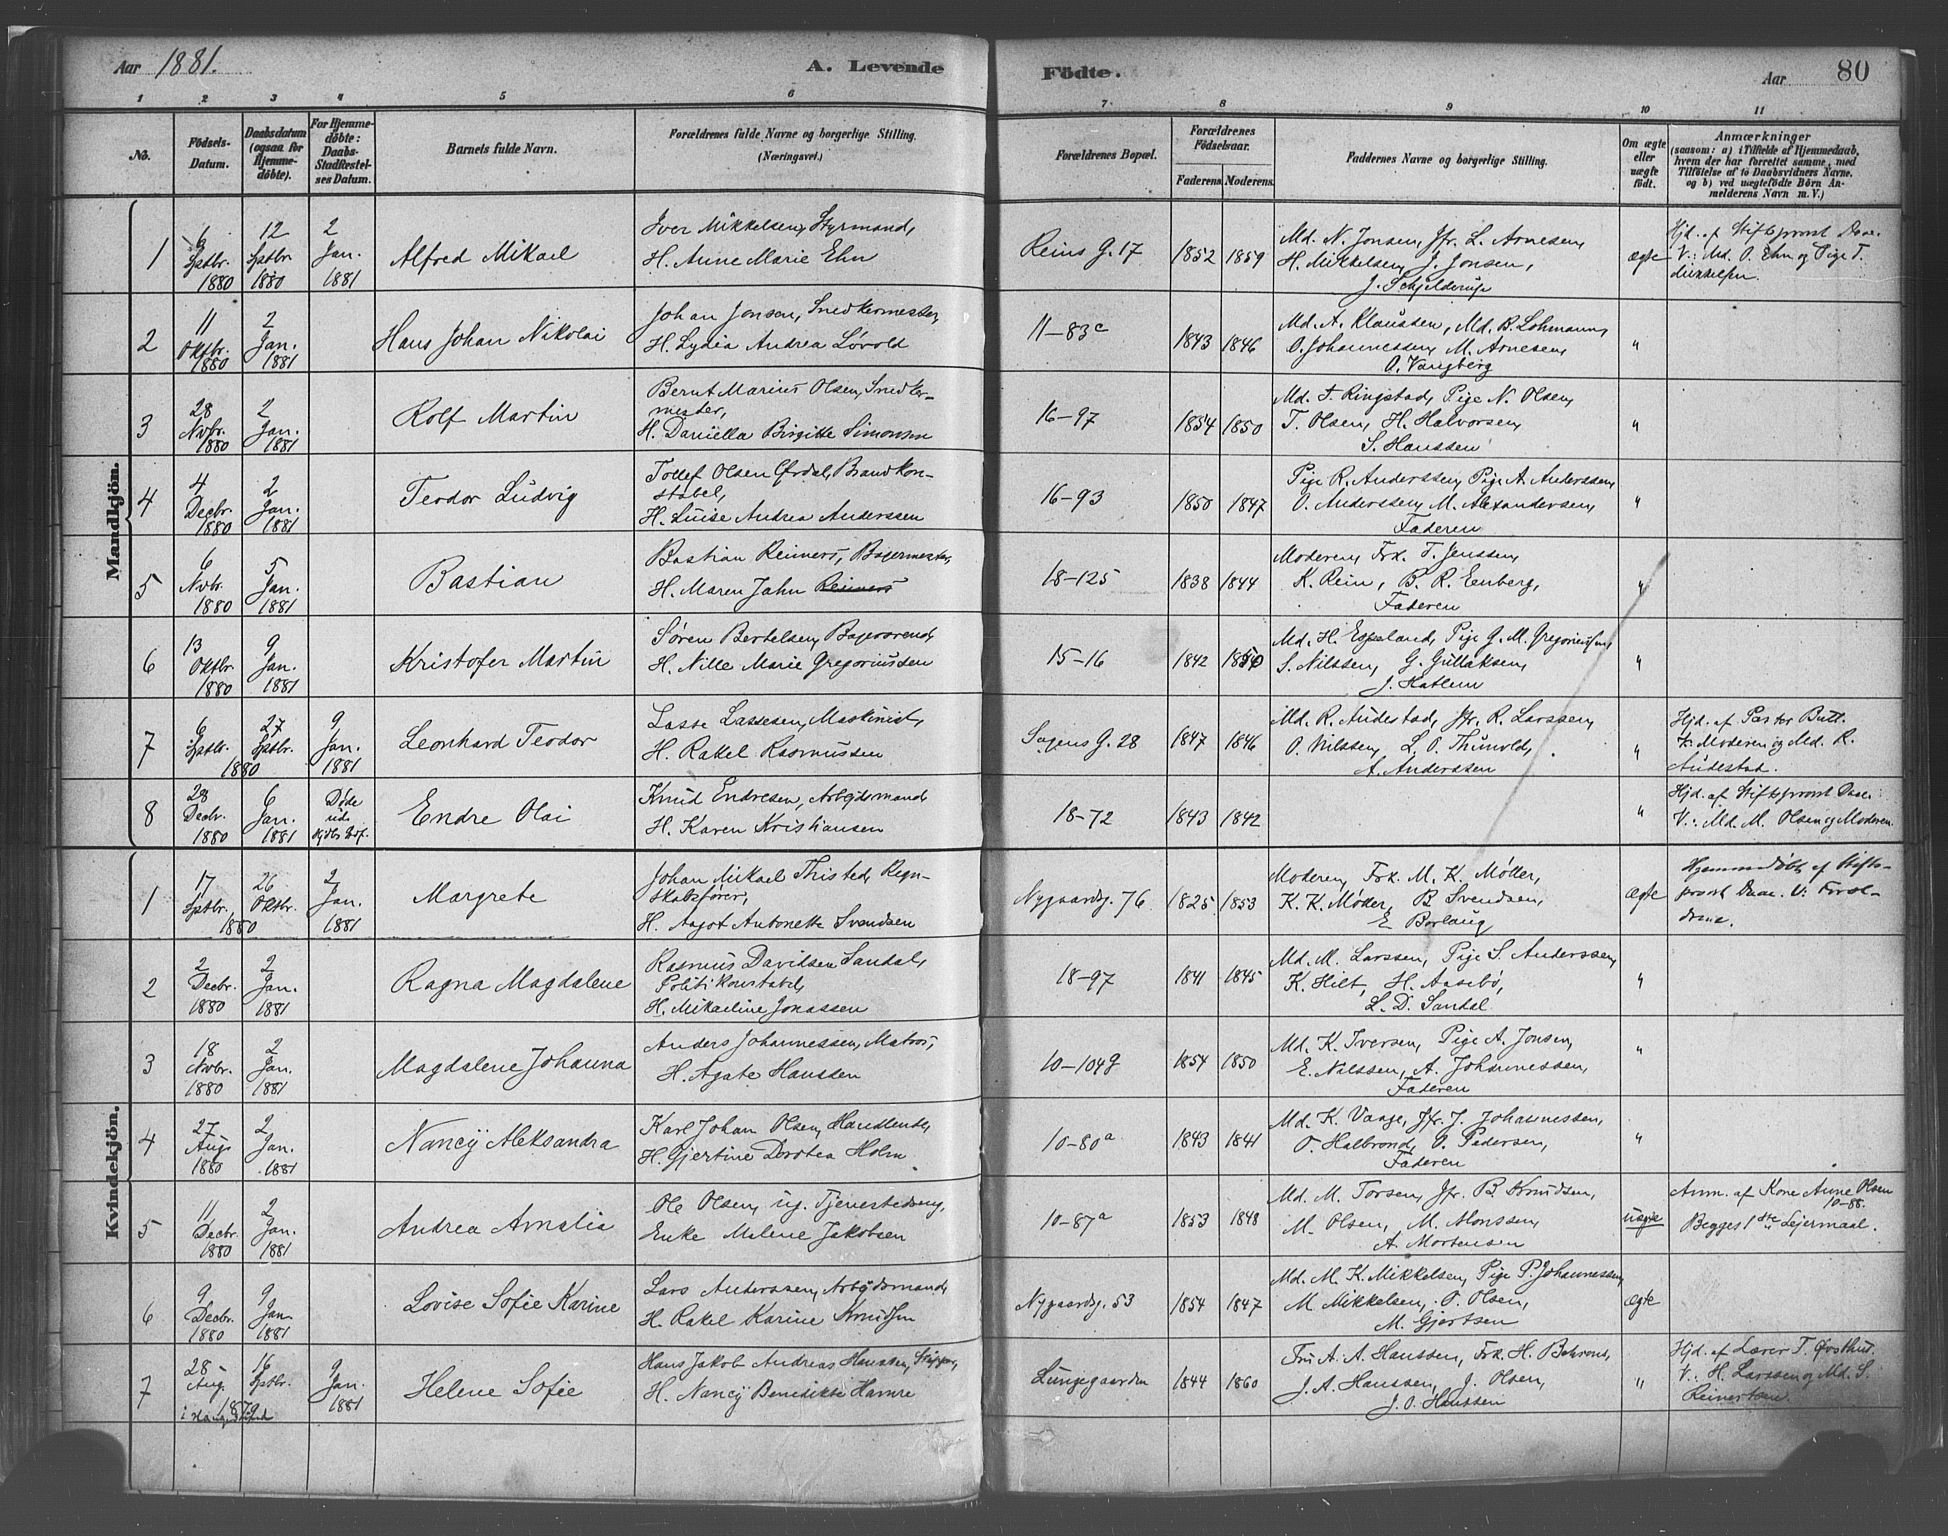 Aar 1881.
A. Levende
Födte.
Aar
80
1 2 3 4 5 6 7 8 9 10 11
No.
Födsels-
Datum.
Daabsdatum
(ogsaa for
Hjemme-
döbte).
For Hjemme-
döbte:
Daabs-
Stadfæstel-
ses Datum.
Barnets fulde Navn.
Forældrenes fulde Navne og borgerlige Stilling.
(Næringsvei.)
Forældrenes Bopæl.
Forældrenes
Födselsaar.
Faderens. Moderens.
Faddernes Navne og borgerlige Stilling.
Om ægte
eller
uægte
födt.
Anmærkninger
(saasom: a) i Tilfælde af Hjemmedaab,
hvem der har forrettet samme, med
Tilföielse af to Daabsvidners Navne,
og b) ved uægtefödte Börn An-
melderens Navn m. V.)
Mandkjön.
1
6 Sptbr. 1880
12 Sptbr. 1880
2 Jan. 1881
Alfred Mikael
Iver Mikkelsen, Styrmand,
H. Anne Marie Ehn
Reins G. 17
1852 1859
Md. N. Jonsen, Jfr. L. Arnesen,
H. Mikkelsen, J. Jonsen,
J. Schjelderup
ægte
Hjd. af Stiftsprovst Daae.
V.: Md. O. Ehn og Pige T.
Mikkelsen.
2
11 Oktbr. 1880
2 Jan. 1881
Hans Johan Nikolai
Johan Jonsen, Snedkermester,
H. Lydia Andrea Løvold
11-83c
1843 1846
Md. A. Klaussen, Md. B. Lohmann,
O. Johannessen, M. Arnesen,
O. Vangberg
"
3
28 Nvbr. 1880
2 Jan. 1881
Rolf Martin
Bernt Marius Olsen, Snedker-
mester,
H. Daniella Birgitte Simonsen
16-97
1854 1850
Md. F. Ringstad, Pige N. Olsen,
T. Olsen, H. Halvorsen,
S. Hanssen
"
4
4 Decbr. 1880
2 Jan. 1881
Teodor Ludvig
Tollef Olsen Ørdal, Brandkon-
stabel,
H. Luise Andrea Anderssen
16-93
1850 1847
Pige R. Anderssen, Pige A. Anderssen,
O. Anderssen, M. Alexandersen,
Faderen
"
5
6 Nvbr. 1880
5 Jan. 1881
Bastian
Bastian Reimers, Bagermester,
H. Maren Jahn Reimers
18-125
1838 1844
Moderen, Frk. T. Jenssen,
K. Rein, B. R. Eenberg,
Faderen
"
6
13 Oktbr. 1880
9 Jan. 1881
Kristofer Martin
Søren Bertelsen, Bagersvend,
H. Nille Marie Gregoriussen
15-16
1842 1850
Md. H. Espeland, Pige G. M. Gregoriussen,
S. Nilssen, G. Gullaksen,
J. Hatlem
"
7
6 Sptbr.
27 Sptbr.
1880
9 Jan. 1881
Leonhard Teodor
Lasse Lassesen, Maskinist,
H. Rakel Rasmussen
Sagens G. 28
1847 1846
Md. R. Audestad, Jfr. R. Larssen,
O. Nilssen, L. O. Thunold,
A. Anderssen
"
Hjd. af Pastor Bull.
V. Moderen og Md. R.
Audestad.
8
28 Decbr. 1880
6 Jan. 1881
Døde
Endre Olai
Knud Endresen, Arbejdsmand
H. Karen Kristiansen
18-72
1843 1842
"
Hjd. af Stiftsprovst Daae.
V.: Md. M. Olsen og Moderen.
Kvindekjön.
1
17 Sptbr.
26 Oktbr.
1880
2 Jan. 1881
Margrete
Johan Mikael Thisted, Regn-
skabsfører,
H. Aagot Antonette Svendsen
Nygaardsg. 76
1825 1853
Moderen, Frk. M. K. Møller,
K. K. Møller, B. Svendsen,
E. Borlaug
Ægte
Hjemmedøbt af Stifts-
provst Daae. V: Foræl-
drene.
2
2 Decbr. 1880
2 Jan. 1881
Ragna Magdalene
Rasmus Davidsen Sandal,
Politikonstabel,
H. Mikaeline Jonassen
18-97
1841 1845
Md. M. Larssen, Pige S. Anderssen,
K. Hilt, H. Aasebø,
L. D. Sandal
"
3
18 Nvbr. 1880
2 Jan. 1881
Magdalene Johanna
Anders Johannessen, Matros,
H. Agate Hanssen
10-104g
1854 1850
Md. K. Iversen, Pige A. Jonsen,
E. Nilssen, A. Johannessen,
Faderen
"
4
27 Augs 1880
2 Jan. 1881
Nancy Aleksandra
Karl Johan Olsen, Handlende,
H. Gjertine Dorotea Holm
10-80a
1843 1841
Md. K. Vaage, Jfr. J. Johannessen,
O. Halbrond, O. Pedersen,
Faderen
"
5
11 Decbr. 1880
2 Jan. 1881
Andrea Amalia
Ole Olsen, ug. Tjenestedreng,
Enke Malene Jakobsen
10-87a
1853 1848
Md. M. Torsen, Jfr. B. Knudsen,
M. Olsen, M. Monssen,
A. Mortensen
uægte
Anm. af Kone Anne Olsen
10-88.
Begges 1ste Lejermaal.
6
9 Decbr. 1880
9 Jan. 1881
Lovise Sofie Karine
Lars Anderssen, Arbejdsmand,
H. Rakel Karine Knudsen
Nygaardsg. 53
1854 1847
Md. M. K. Mikkelsen, Pige P. Johannessen,
M. Mikkelsen, O. Olsen,
M. Gjertsen
Ægte
7
28 Aug.
16 Sptbr.
1879
9 Jan. 1881
Helene Sofie
Hans Jakob Andreas Hanssen, Skipper,
H. Nancy Benedikte Hamre
Lungegaarden
1844 1860
Fru A. A. Hanssen, Frk. H. Behrens,
J. A. Hanssen, J. Olsen,
J. O. Hanssen
"
Hjd. af Lærer T. Østhus.
V.: H. Larssen og Md. S.
Reinertsen.